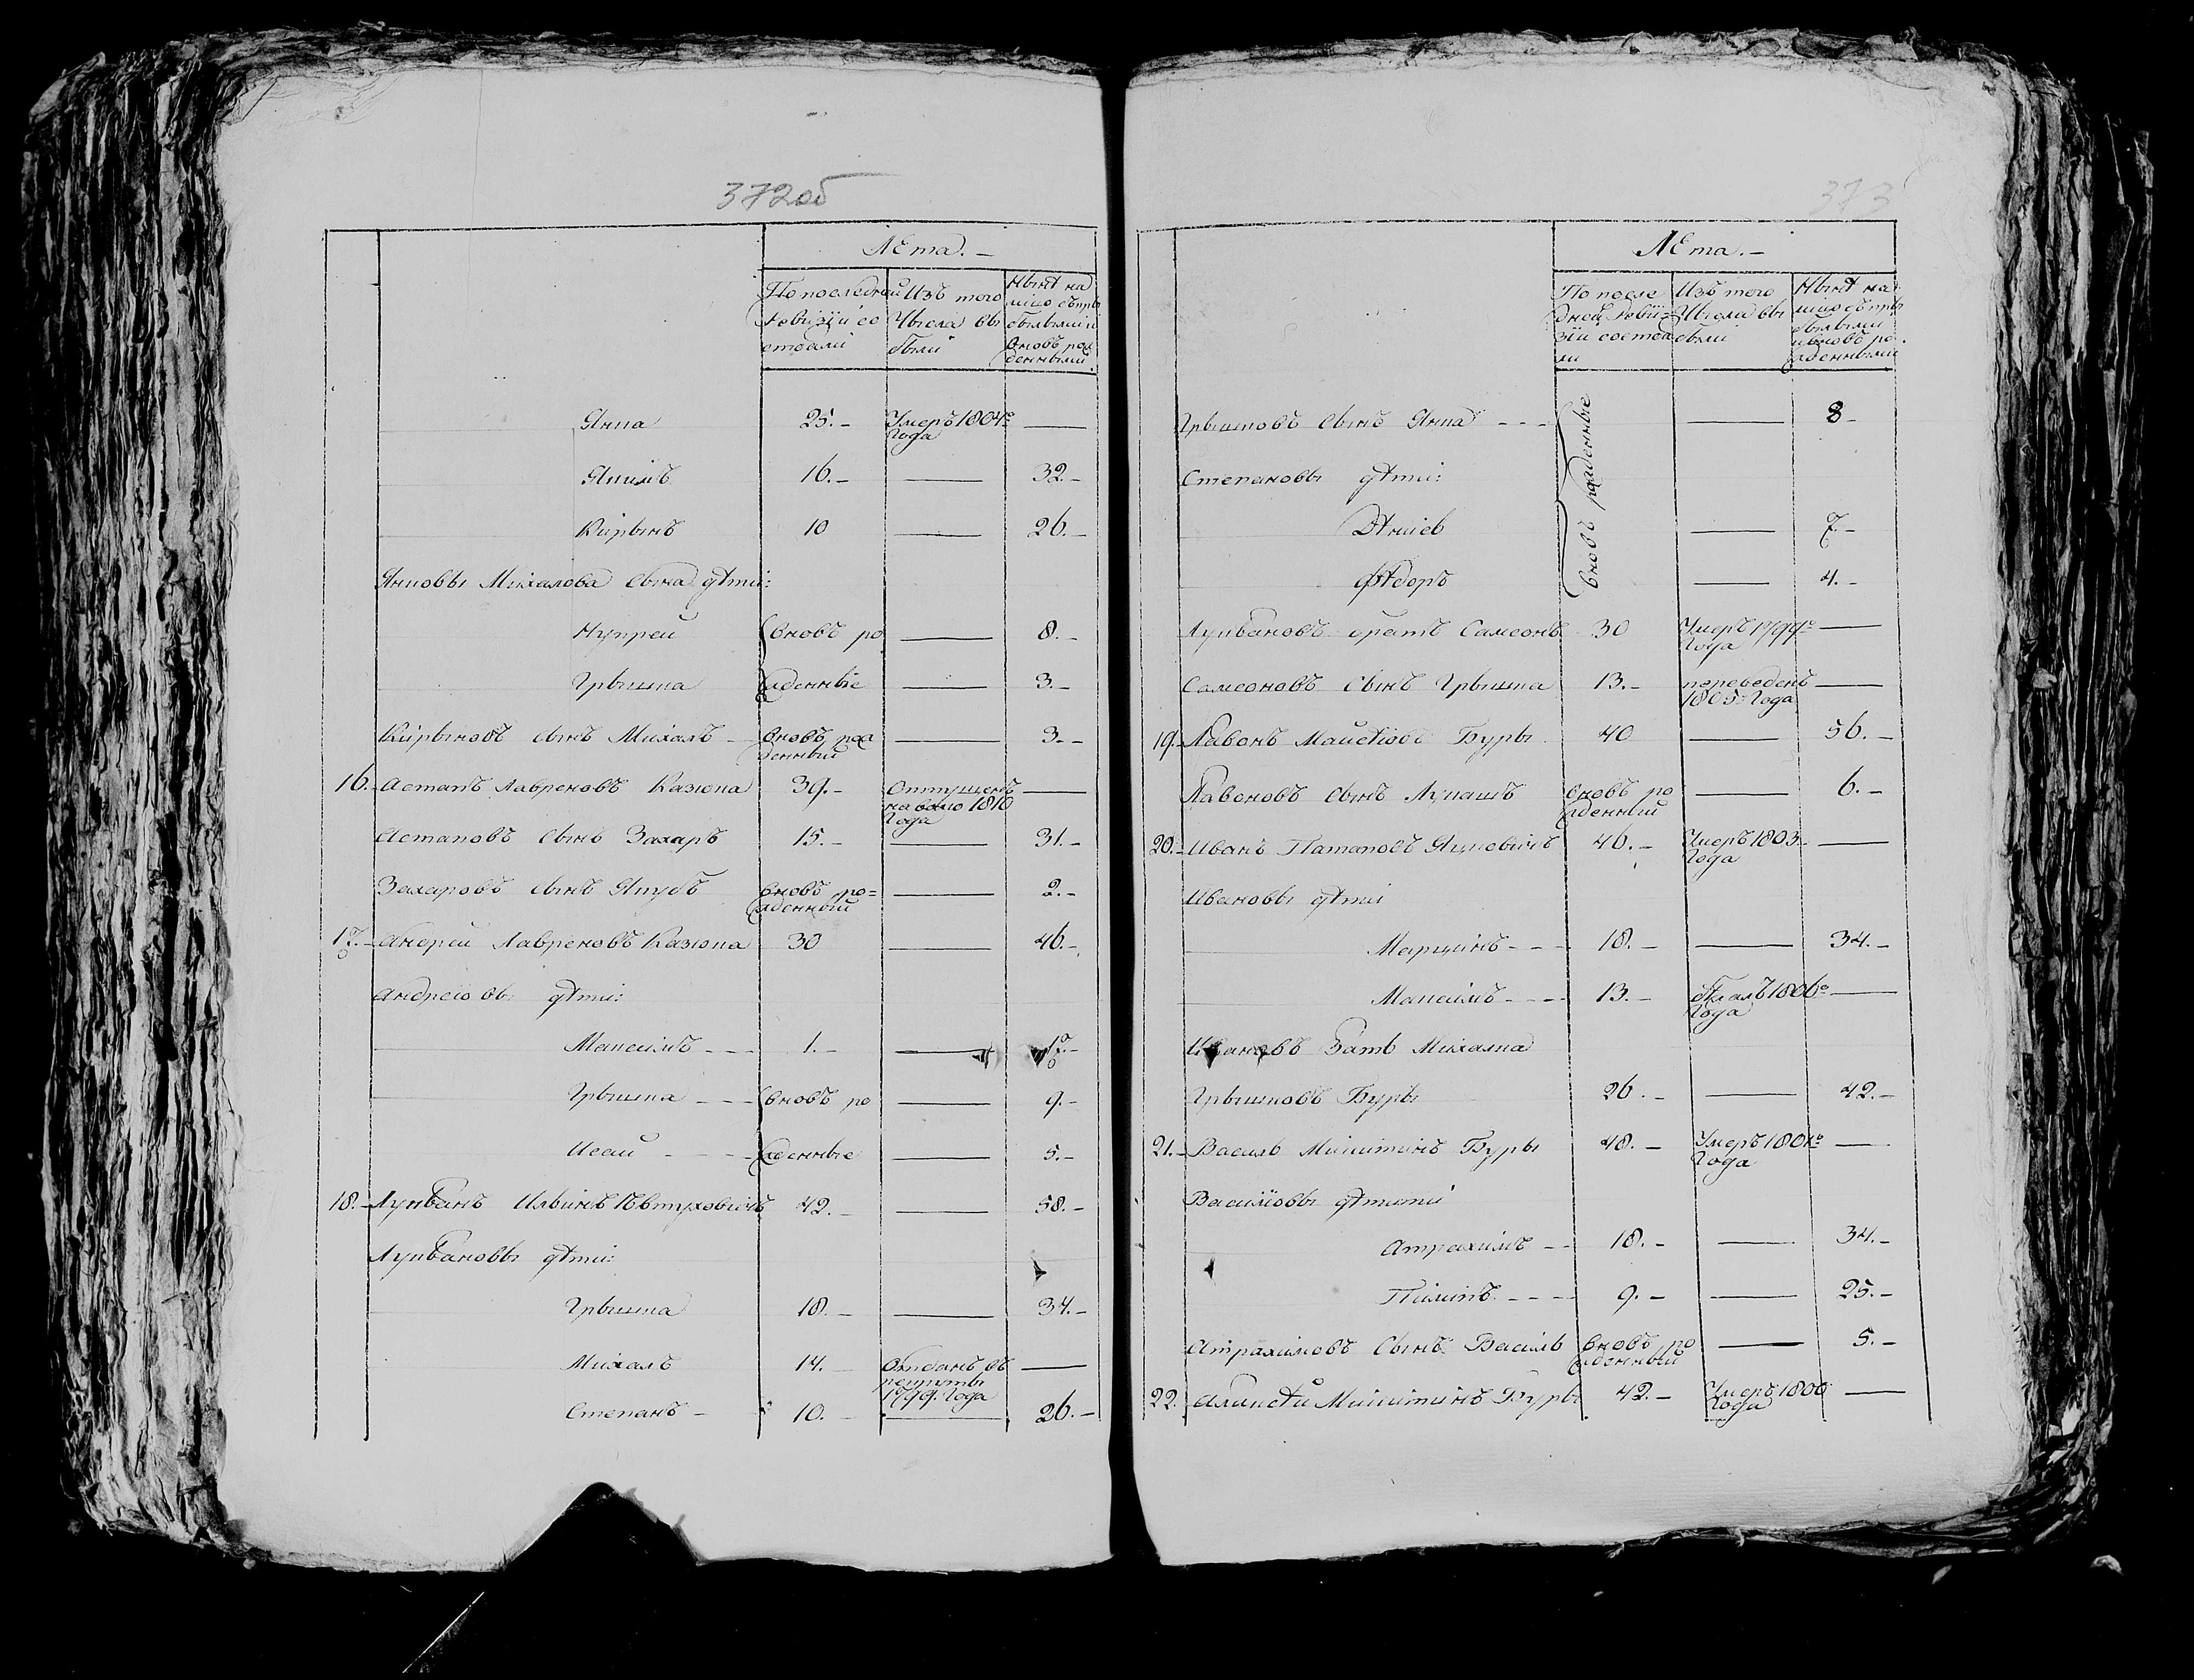 372об
Лѣта. –
По последней
ревизiи со
стояли
Изъ того
числа вы
были
Нынѣ на
лицо съ при
былыми и
вновь рож
денными
Янка 25. – Умеръ 1804го
Года
Якимъ 16. – 32. –
Кирынъ 10 26. –
Янковы Михалова сына дѣти:
Купрей вновь ро 8. –
Грышка жденные 3. –
Кирыновъ сынъ Михалъ – вновь рож 3. –
денный
16. Астапъ Лавреновъ Казюка 39. – Отпущенъ
на волю 1810
Года
Астаповъ сынъ Захаръ 15. – 31. –
Захаровъ сынъ Якубъ вновь ро= 2. –
жденный
17. – Андрей Лавреновъ Казюка 30 46. –
Андреювы дѣти:
Максимъ – – – 1. – 17. –
Грышка – – – вновь ро 9. –
Исай – – – жденные 5. –
18. – Лукъянъ Ильинъ 42. – 58. –
Лукъяновы дѣти:
Грышка 18. – 34. –
Михалъ 14. – Отданъ въ
рекруты
1799. Года
Степанъ – 10. – 26. –
373
Лѣта. –
По после
дней реви=
зiи состоя
ли
Изъ того
числа вы
были
Нынѣ на
лицо съ при
былыми
и вновь ро
жденными
вновь рожденные
Грышковъ сынъ Янка – – – 8 –
Степановы дѣти:
7. –
Фѣдоръ 4. –
Лукъяновъ братъ Самсонъ 30 Умеръ 1799го
Года
Самсоновъ сынъ Грышка 13. – переведенъ
1805 Года
19. – Лавонъ Буры 40 56. –
Лавоновъ сынъ Лукашъ вновь ро 6. –
жденный
20. – Иванъ Патаповъ Яцковичъ 46. – Умеръ 1803
Года
Ивановы дѣти
Марцинъ – – – 18. – 34. –
Максимъ – – – – 13. – бѣжалъ 1806го
Года
Ивановъ Зять Михалка
Грышковъ Буры 26. – 42. –
21. – Василь Микитинъ Буры 48. – Умеръ 1801го
Года
Васильовы
Атрахимъ – – 18. – 34. –
Пилипъ – – – – 9. – 25. –
Атрахимовъ Сынъ Василь вновь ро 5. –
жденный
22. Аликсѣй Микитинъ Буры 42. – Умеръ 1800
Года